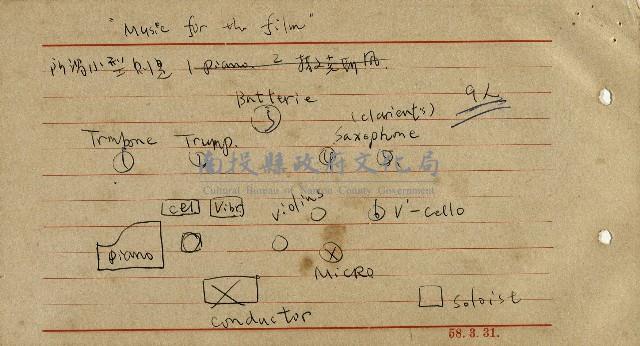 "Music for the film"
所謂小型則是 1 piano 2
Batterie
(clarients)
9人
Trmbone Trump. Saxophone
南投縣政府文化局
Cultural Bureau of Nantou County Government
cel Vibr violins
V'-cello
piano
MICRO
conductor
soloist
58.3.31.